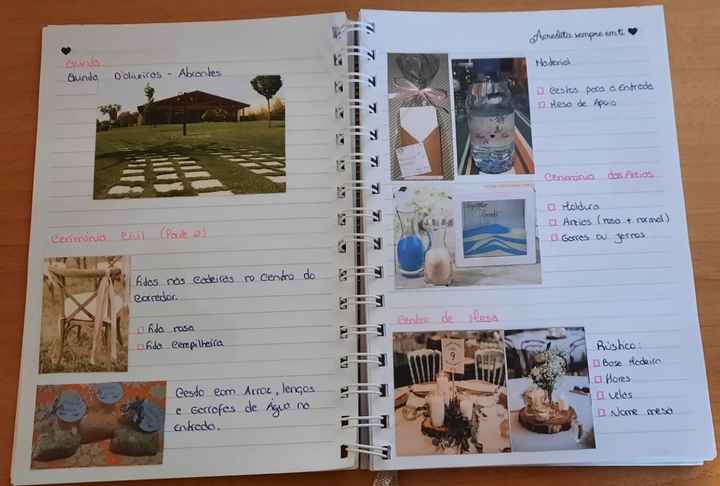 Quinta
Quinta D'oliveiras - Abrantes
Cerimónia Civil (Parte 2)
Fitas nas Cadeiras no Centro do
Corredor.
Fita rosa
Fita Serapilheira
Cesto com Arroz, lenços
e Garrafas de Água na
entrada.
Acredita sempre em ti
Material
Cestos para a entrada
Mesa de Apoio
Cerimónia das Areias
Moldura
Areias (rosa + normal)
Garras ou jarros
Centro de Mesa
9
Rústico:
Base Madeira
Flores
Velas
Nome mesa